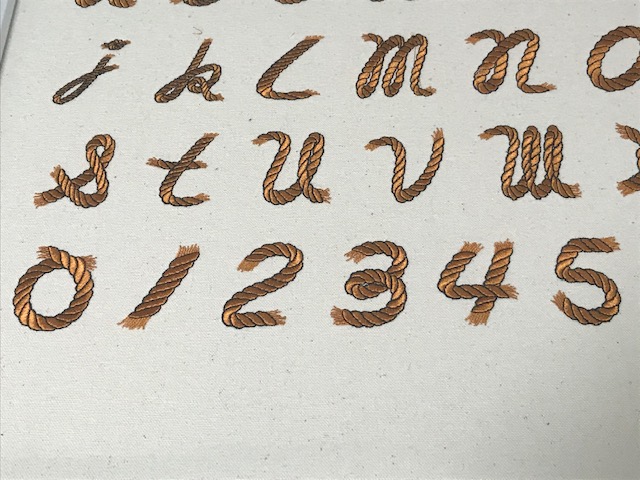 j k l m n o
s t u v w
0 1 2 3 4 5